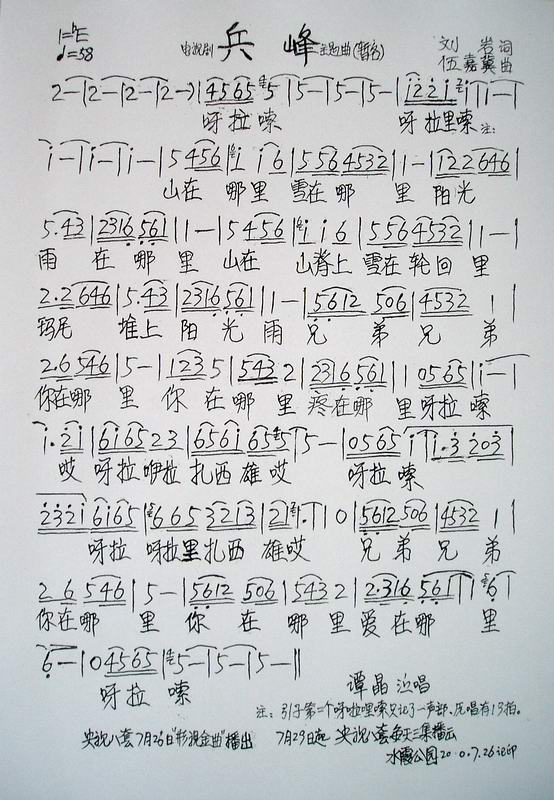 1=♭E
♩=58
电视剧 兵 峰 主题曲(暂名)
刘 岩 词
伍嘉冀 曲
2-|2-|2-|2-)|4565 5|5-|5-|5-|1221 1|1-|
呀拉嗦 呀拉里嗦 注:
1-|1-|1-|5 456|1 1 6|5564532|1-|122646|
山在 哪里 雪在哪 里 阳光
5.43|2316561|1-|5 456|1 1 6|5564532|1-|
雨 在哪里 山在 山脊上 雪在轮回 里
2.2646|5.43|2316561|1-|5612 506|4532 1|
玛尼 堆上 阳光雨 兄 弟 兄 弟
2.6546|5-|123 5|543 2|2316561|1 0565|1-|
你在哪 里 你在哪里 疼在哪 里呀拉 嗦
1.21|616523|6561 655|5-|0565 1|1.3 203|
哎 呀拉咿拉 扎西雄哎 呀拉 嗦
2321 6165|6653213|21 1.|1 0|5612 506|4532 1|
呀拉 呀拉里扎西 雄哎 兄弟兄 弟
2 6 546|5-|5612 506|543 2|2.316 561|6|
你在哪 里 你 在 哪里爱在哪 里
6-|04565|5-|5-|5-||
呀拉 嗦
谭晶 演唱
注:引子第二个呀拉里嗦只记了一声部、原唱有13拍。
央视八套7月26日"影视金曲"播出 7月29日起 央视八套每天三集播云
水霞公园2010.7.26记印